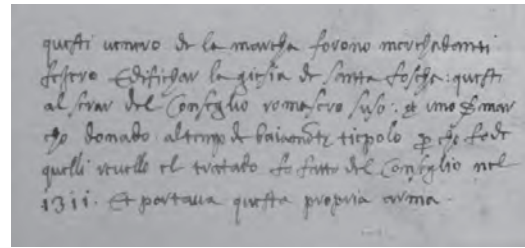 questi uenero de la marcha forono merchadanti
fesero Edifichar la giesia de santa foscha: questi
al serar del Conseglio romasero suso. et uno ser mar
cho donado al temp de baiamonte tiepolo per che fede
quelli reuello el tratado fo fatto del Conseglio nel
1311. Et portaua questa propria arma.